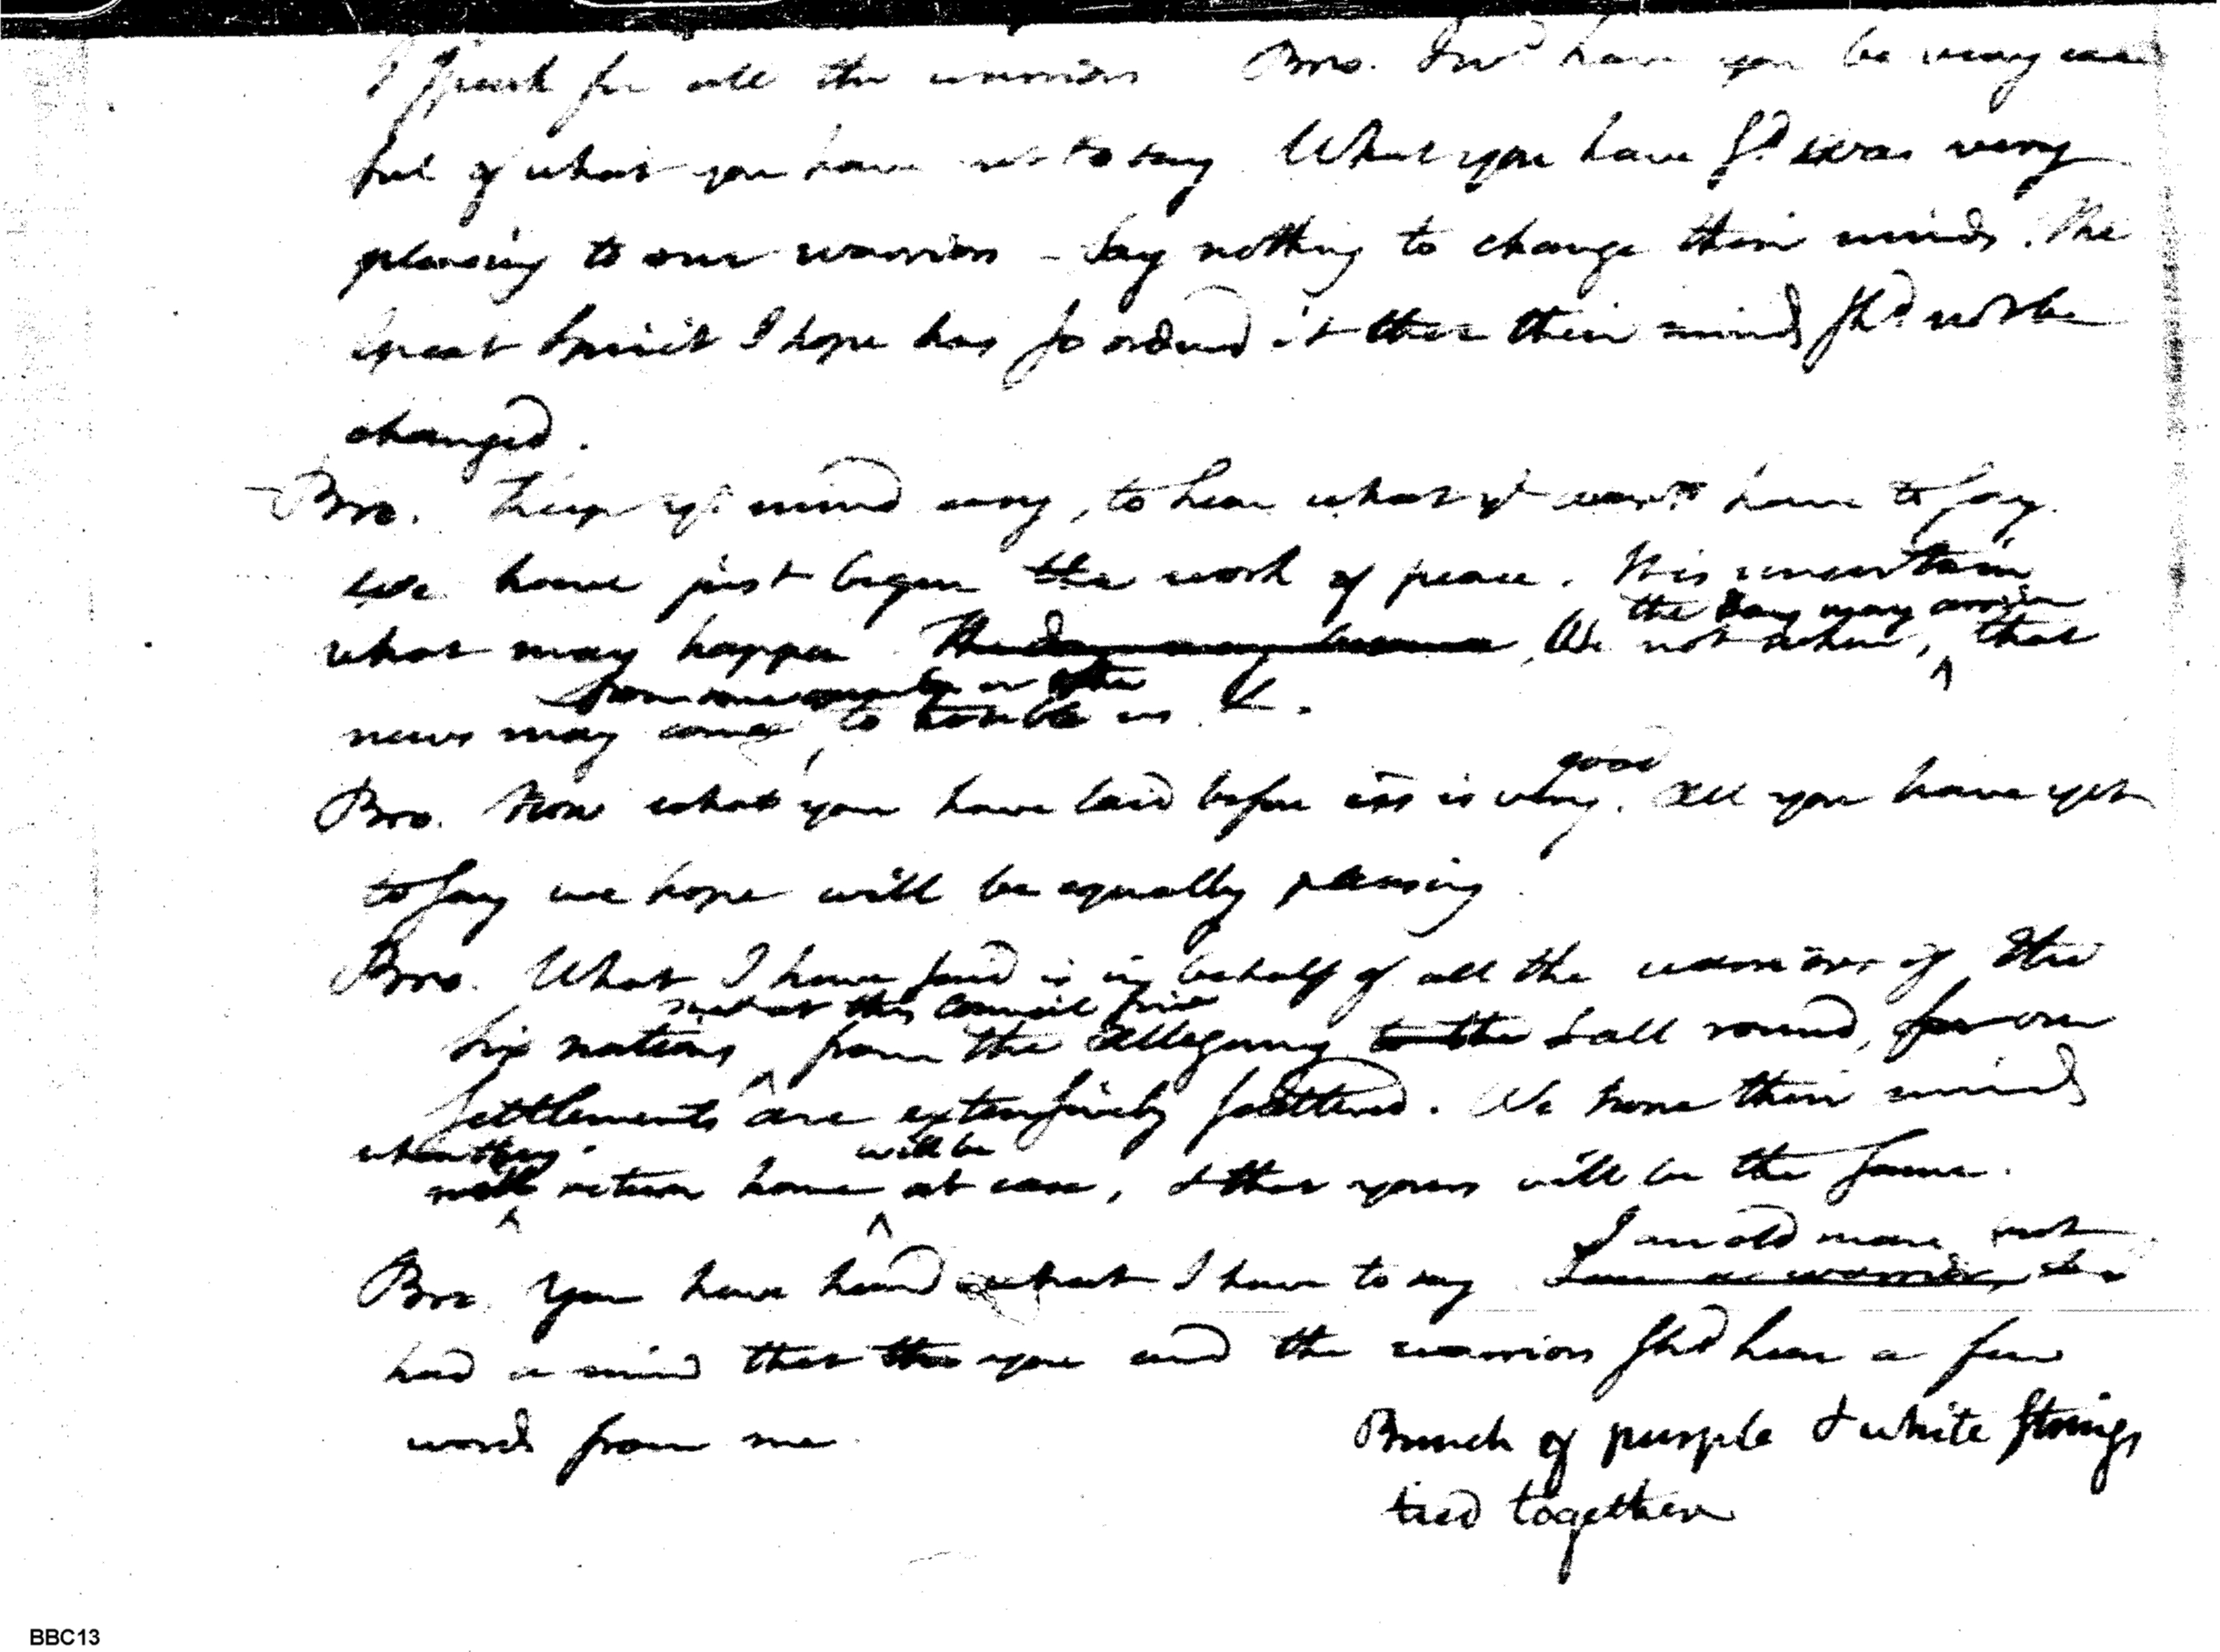 I speak for all the warriors Bro. I wd have you be very care
ful of what you have yet to say. What you have sd was very
pleasing to our warriors – Say nothing to change their minds. The
Great Spirit I hope has so ordered it that their minds shd not be
changed.
– Bro. Keep yr mind easy, to hear what yt have to say.
We have just begun the work of peace. It is uncertain
the day may arrive
what may happen. The day may , We not when, ^ that
from one quarter or other
news may come, to trouble us &.
good
Bro. Now what you have laid before us is very. All you have yet
to say we hope will be equally pleasing.
Bro. What I have said is in behalf of all the warriors of the
met at this council fire
Six nations ^ from the Allegany to the & all round, for our
settlements are extensively scattered. We hope their minds
when they will be
return home ^ at ease, & that yours will be the same.
I am old man, not
Bro. You have heard what I have to say I am a warrior, but
had a mind that the you and the warriors shd hear a few
words from me.
Bunch of purple & white strings
tied together
BBC13